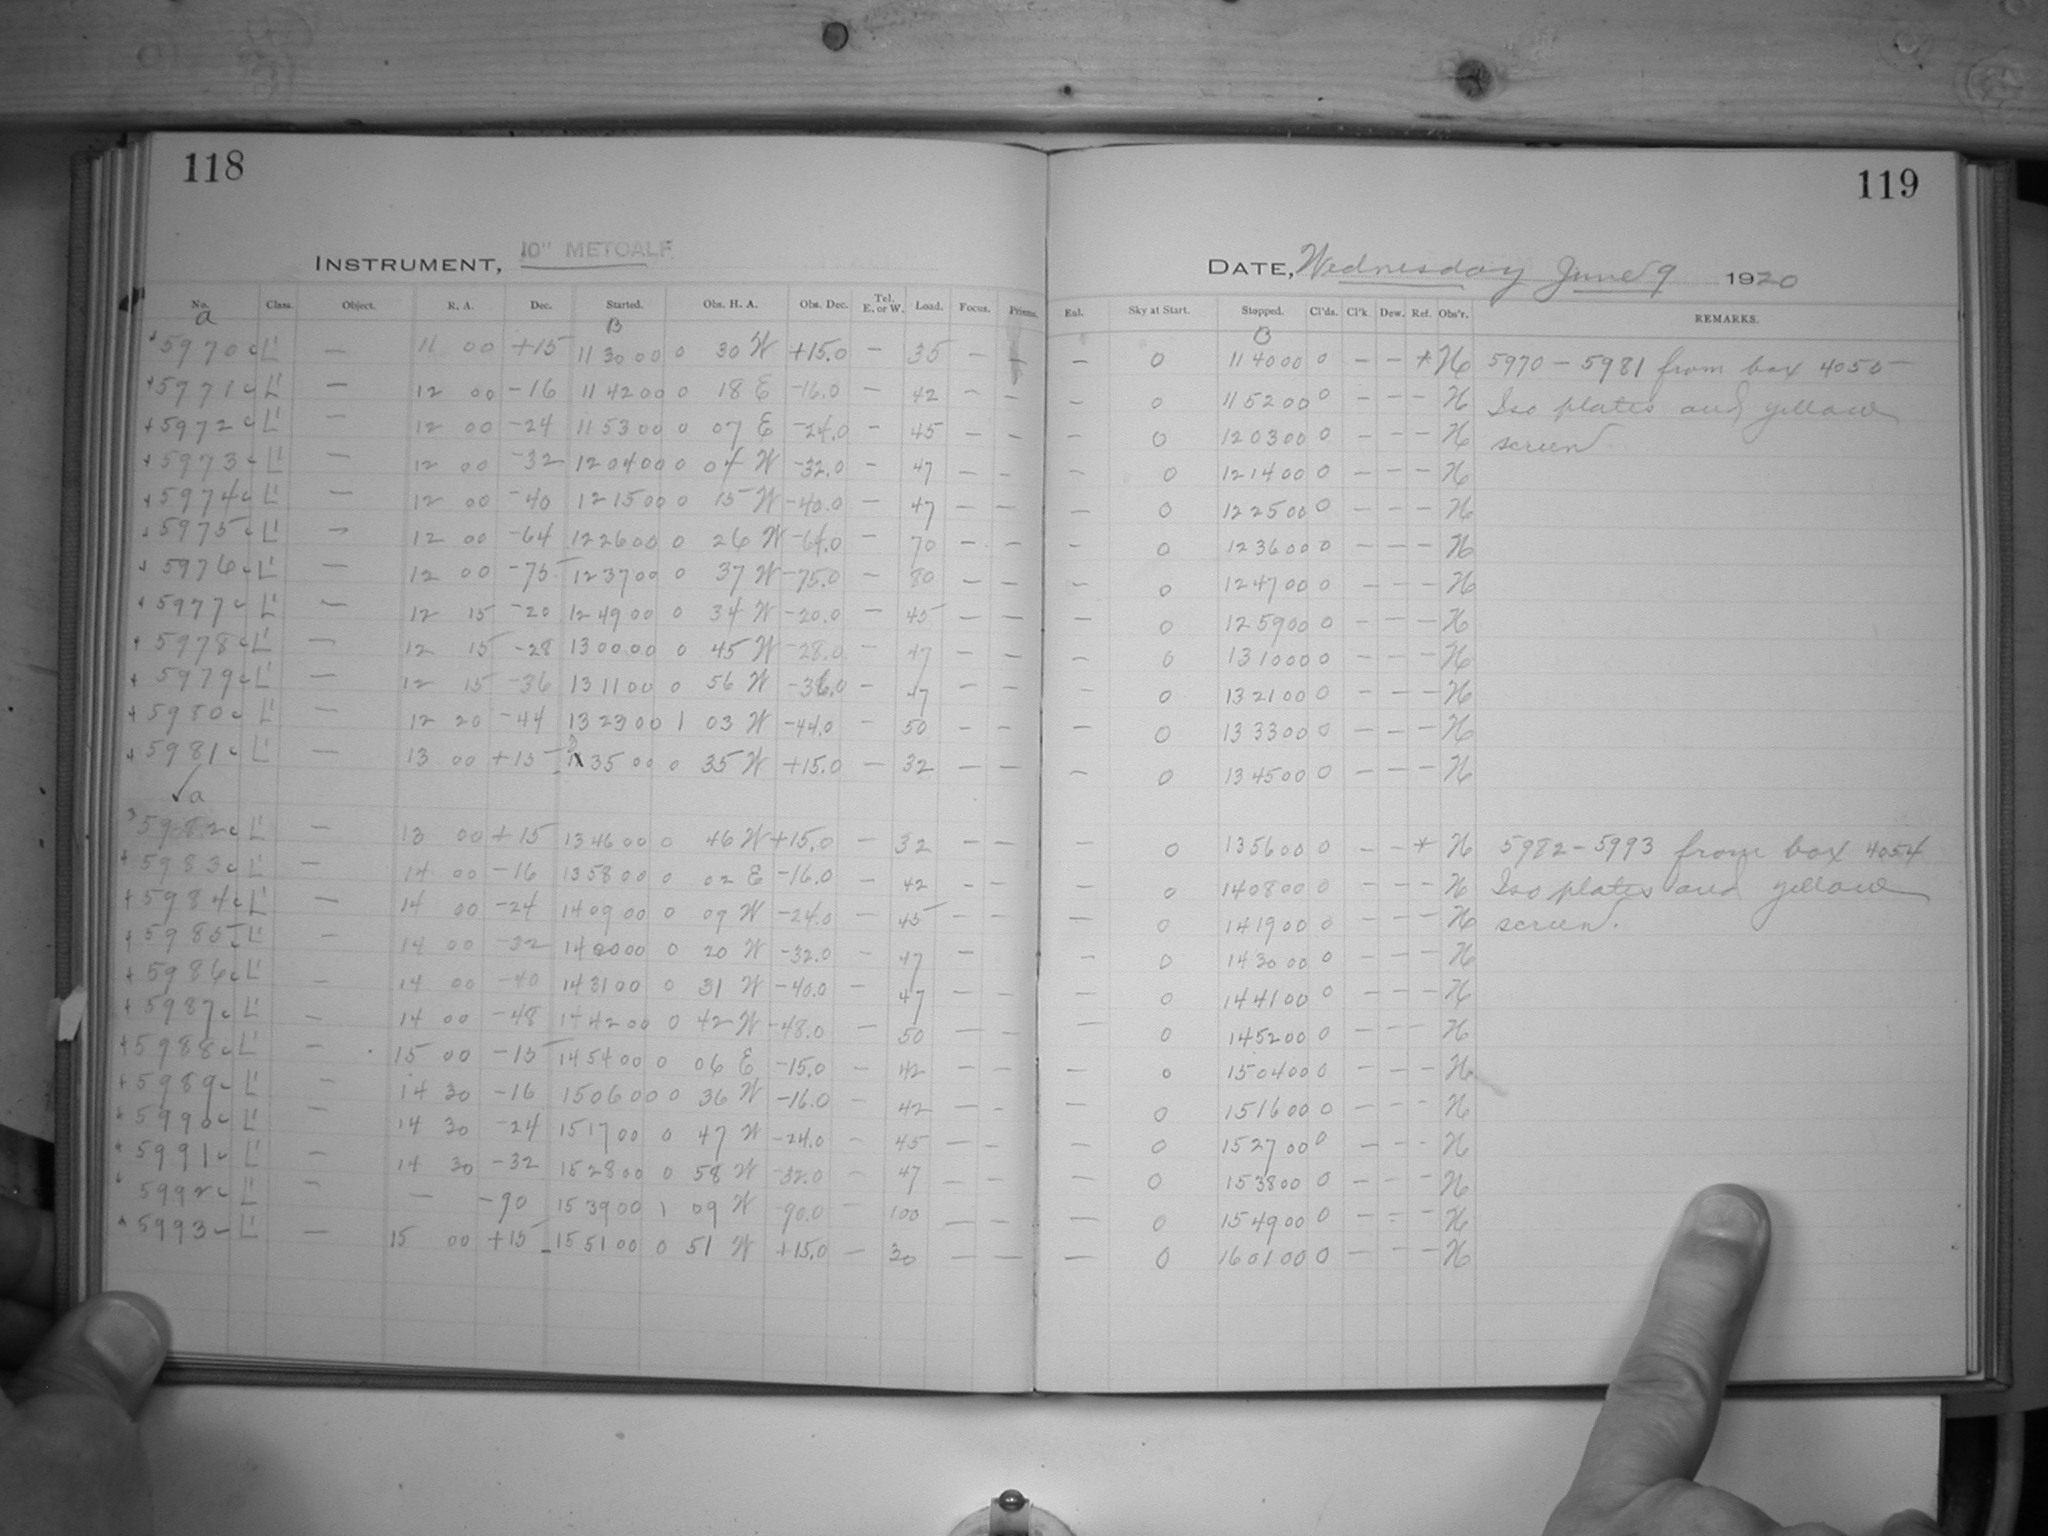 118
119
INSTRUMENT, 10" METCALF.
DATE, Wednesday June 9 1920
No. Class. Object. R. A. Dec. Started. Obs. H. A. Obs. Dec. Tel. E. or W. Load. Focus. Prisms. Eal. Sky at Start. Stopped. Cl'ds. Cl'k. Dew. Ref. Obs'r. REMARKS.
a B B
+5970 c L' — 11 00 +15 11 30 00 0 30 W +15.0 — 35 — — — 0 11 40 00 0 — — * H 5970 - 5981 from box 4055
+5971 c L' — 12 00 -16 11 42 00 0 18 E -16.0 — 42 — — — 0 11 52 00 0 — — — H Iso plates and yellow
+5972 c L' — 12 00 -24 11 53 00 0 07 E -24.0 — 45 — — — 0 12 03 00 0 — — — H screen.
+5973 c L' — 12 00 -32 12 04 00 0 04 W -32.0 — 47 — — — 0 12 14 00 0 — — — H
+5974 c L' — 12 00 -40 12 15 00 0 15 W -40.0 — 47 — — — 0 12 25 00 0 — — — H
+5975 c L' — 12 00 -64 12 26 00 0 26 W -64.0 — 70 — — — 0 12 36 00 0 — — — H
+5976 c L' — 12 00 -75 12 37 00 0 37 W -75.0 — 80 — — — 0 12 47 00 0 — — — H
+5977 c L' — 12 15 -20 12 49 00 0 34 W -20.0 — 45 — — — 0 12 59 00 0 — — — H
+5978 c L' — 12 15 -28 13 00 00 0 45 W -28.0 — 47 — — — 0 13 10 00 0 — — — H
+5979 c L' — 12 15 -36 13 11 00 0 56 W -36.0 — 47 — — — 0 13 21 00 0 — — — H
+5980 c L' — 12 20 -44 13 23 00 1 03 W -44.0 — 50 — — — 0 13 33 00 0 — — — H
+5981 c L' — 13 00 +15 13 35 00 0 35 W +15.0 — 32 — — — 0 13 45 00 0 — — — H
✓a
5982 c L' — 13 00 +15 13 46 00 0 46 W +15.0 — 32 — — — 0 13 56 00 0 — — * H 5982 - 5993 from box 4054
+5983 c L' — 14 00 -16 13 58 00 0 02 E -16.0 — 42 — — — 0 14 08 00 0 — — — H Iso plates and yellow
+5984 c L' — 14 00 -24 14 09 00 0 09 W -24.0 — 45 — — — 0 14 19 00 0 — — — H screen.
+5985 c L' — 14 00 -32 14 20 00 0 20 W -32.0 — 47 — — — 0 14 30 00 0 — — — H
+5986 c L' — 14 00 -40 14 31 00 0 31 W -40.0 — 47 — — — 0 14 41 00 0 — — — H
+5987 c L' — 14 00 -48 14 42 00 0 42 W -48.0 — 50 — — — 0 14 52 00 0 — — — H
+5988 c L' — 15 00 -15 14 54 00 0 06 E -15.0 — 42 — — — 0 15 04 00 0 — — — H
+5989 c L' — 14 30 -16 15 06 00 0 36 W -16.0 — 42 — — — 0 15 16 00 0 — — — H
5990 c L' — 14 30 -24 15 17 00 0 47 W -24.0 — 45 — — — 0 15 27 00 0 — — — H
5991 c L' — 14 30 -32 15 28 00 0 58 W -32.0 — 47 — — — 0 15 38 00 0 — — — H
5992 c L' — — -90 15 39 00 1 09 W -90.0 — 100 — — — 0 15 49 00 0 — — — H
5993 c L' — 15 00 +15 15 51 00 0 51 W +15.0 — 30 — — — 0 16 01 00 0 — — — H